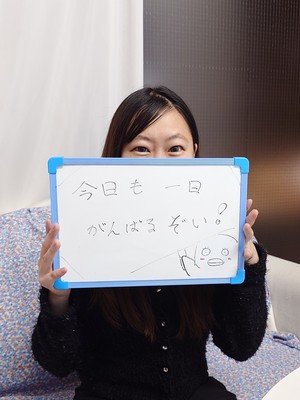 今日も 一日
がんばるぞい!